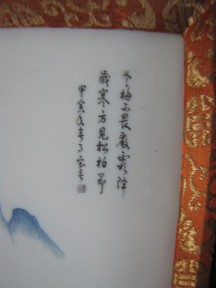 冬梅不畏嚴霜降
歲寒方見松柏節
甲寅